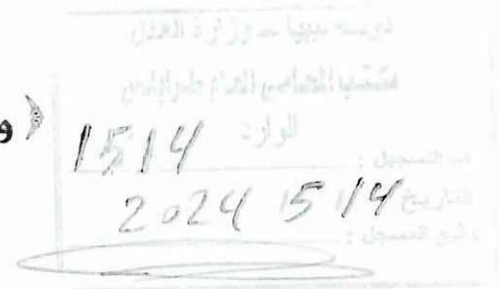 دولة ليبيا - وزارة العدل
مكتب المحامي العام طرابلس
الوارد
و
رقم التسجيل : 1514
التاريخ 2024 15 / 14
توقيع المسجل :